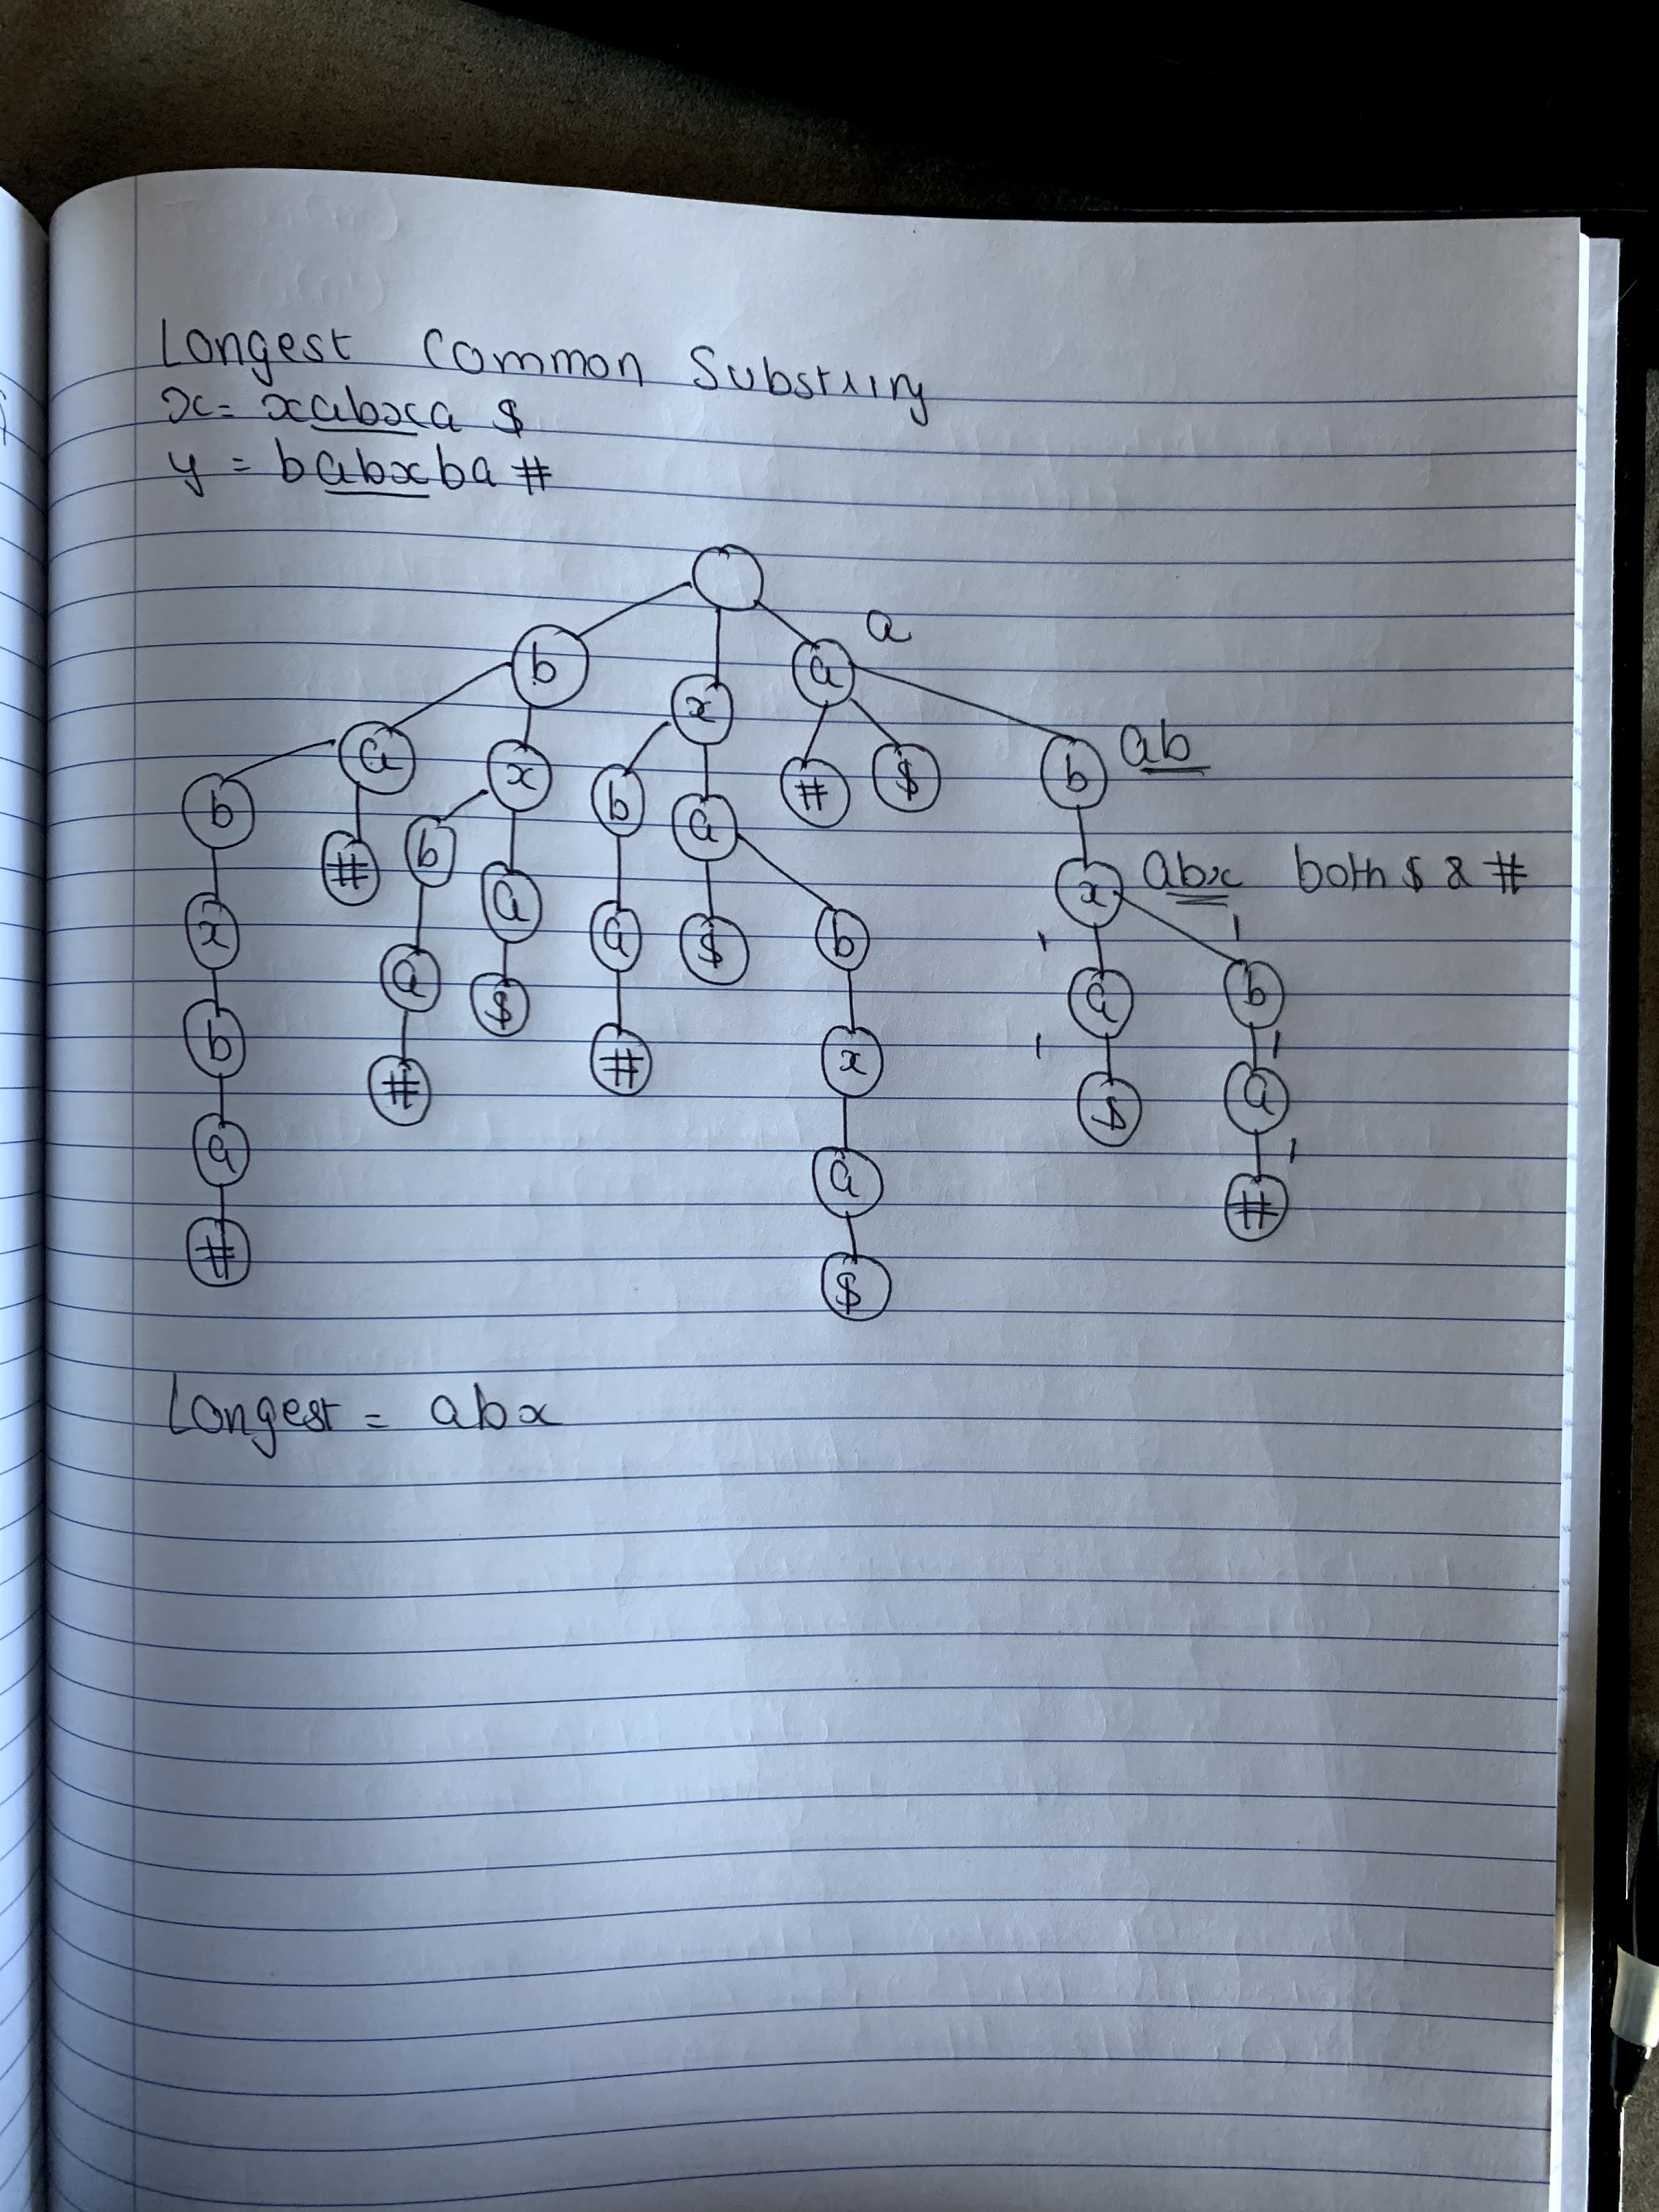 Longest Common Substring
x = xabxa $
y = babxba #
a
b
a
x
a
ab
b
a
x
b
#
$
b
b
#
b
a
x
abx both $ & #
x
a
a
a
$
b
a
b
b
a
#
$
#
x
$
a
a
a
#
#
$
Longest = abx